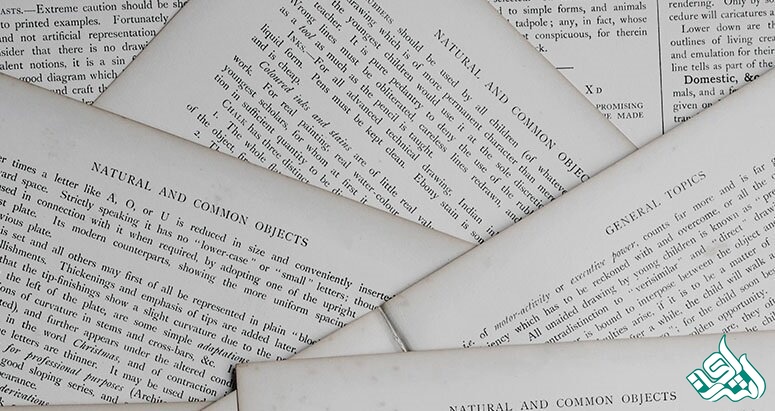 ASTS.—Extreme caution should be sh
to printed examples. Fortunately
and not artificial representation
sider that there is no drawin
alent notions, it is a sin
good diagram which
and craft th
NATURAL AND COMMON OBJEC
should be used by all children (of whateve
drawing which is of more permanent character than mere
the youngest children would, use at the sole discretion
teacher. It is pure pedantry to deny the use of the rubber
Wrong lines must be obliterated, careless lines redrawn, and
as a tool as much as the pencil is taught.
INKS.—For all advanced technical drawing, Indian in
liquid form. Pens must be kept clean. Ebony stain is som
and is cheap.
Coloured inks and stains are of little real val
work. For real painting, real water-colour
youngest scholars, for whom at first
tion in sufficient quantity
CHALK has three distinc
1. The whole
of the object, fir
2. Th
to simple forms, and animals
tadpole; any, in fact, whose
conspicuous, for therein
X D
PROMISING
E MADE
rendering. Only by so
cedure will caricatures a
Lower down are th
outlines of living crea
and emulation for their
line tells as part of the
Domestic, &c
mals, and a f
given on
trans
NATURAL AND COMMON OBJECTS
er times a letter like A, O, or U is reduced in size and conveniently inserte
ard space. Strictly speaking it has no "lower-case" or "small" letters; thou
used in connection with it when required, by adopting one of the upright
st plate. Its modern counterparts, showing the more uniform spacing
vious plate.
is set and all others may first of all be represented in plain "blo
llishments. Thickenings and emphasis of tips are added later
that the tip-finishings show a slight curvature due to the
the left of the plate, are some simple adaptations
ions of curvature in stems and cross-bars, &c.
ted) and further appears under the altered cond
in the word Christmas, and of contraction
e letters are thinner. It may be used
for professional purposes (Archit
good sloping series, and
pearance.
derivations
GENERAL TOPICS
i.e. of motor-activity or executive power, counts far more and is far
ciency which has to be reckoned with and overcome, or all the
All unaided drawing by young children is known as "pr
contradistinction to "verisimilar" and "direct" draw
is bound to interpose between the object an
culties arise, if it is to be a matter
after a while, the child will walk
for, the child soon be
opportunity.
NATURAL AND COMMON OBJECTS